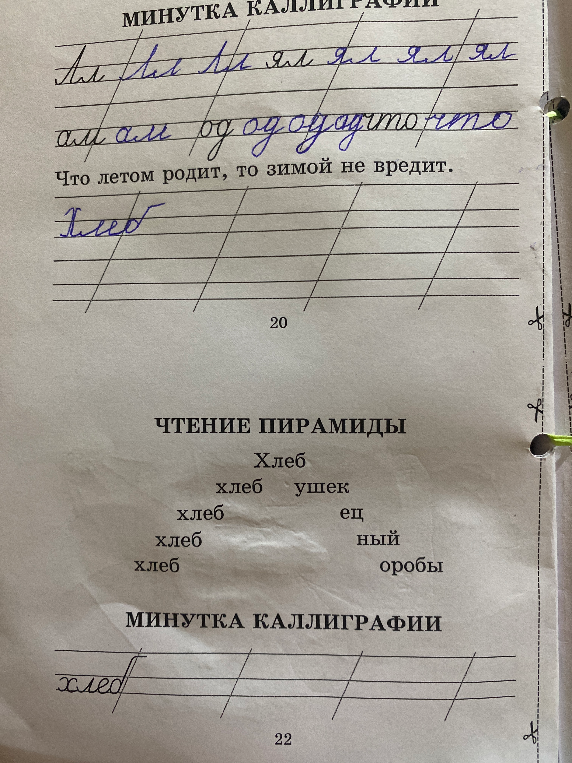 МИНУТКА КАЛЛИГРАФИИ
Ал Ал Ал ял ял ял ял
ам ам од од од од что что
Что летом родит, то зимой не вредит.
Хлеб
20
ЧТЕНИЕ ПИРАМИДЫ
Хлеб
хлеб ушек
хлеб ец
хлеб ный
хлеб оробы
МИНУТКА КАЛЛИГРАФИИ
хлеб
22